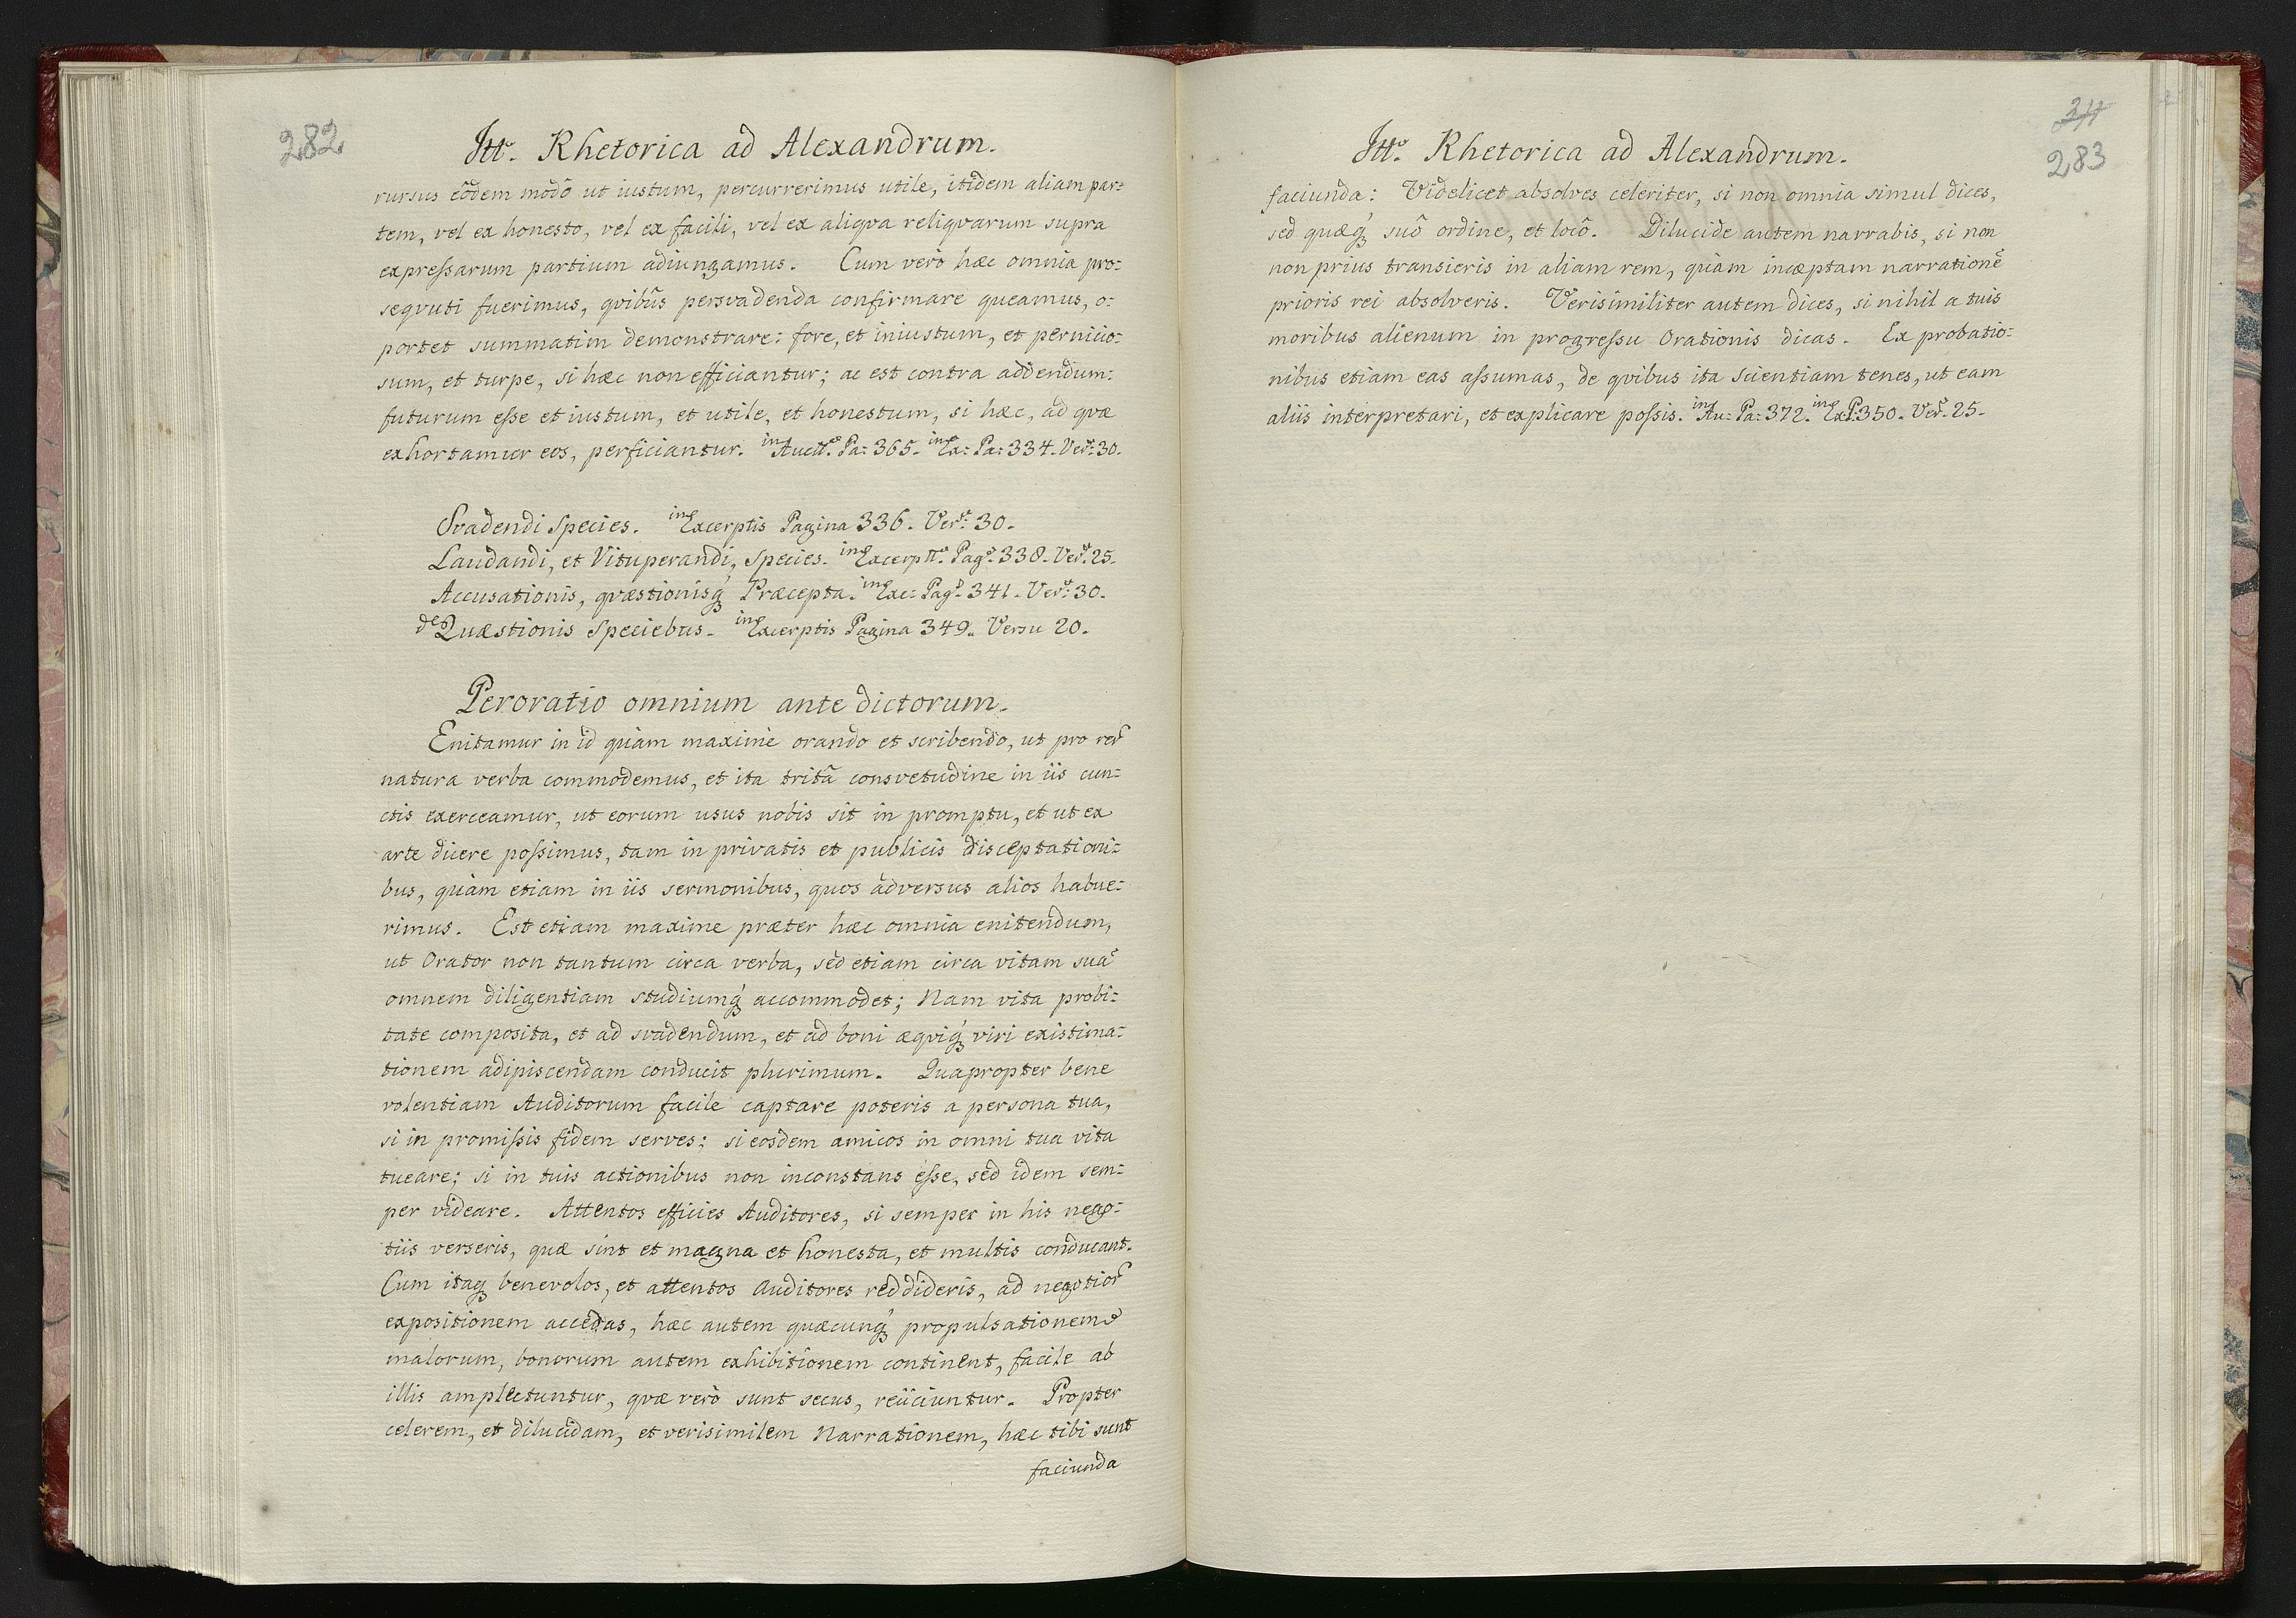 282
Itt. Rhetorica ad Alexandrum.
rursus eôdem modô ut iustum, percurrerimus utile, itidem aliam par:
tem, vel ex honesto, vel ex facili, vel ex aliqva reliqvarum supra
expressarum partium adiungamus. Cum verò hæc omnia pro:
seqvuti fuerimus, qvibûs persvadenda confirmare queamus, o:
portet summatim demonstrare: fore, et iniustum, et pernicio:
sum, et turpe, si hæc non efficiantur; ac est contra addendum:
futurum esse et iustum, et utile, et honestum, si hæc, ad qvæ
exhortamur eos, perficiantur. in Auctt. Pa: 365. in Ex: Pa: 334. Ver: 30.
Svadendi Species. in Excerptis Pagina 336. Ver: 30.
Laudandi, et Vituperandi, Species. in Excerptt. Pag. 338. Ver. 25.
Accusationis, qvæstionisq́ Præcepta. in Exc: Pag. 341. Ver: 30.
de Quæstionis Speciebus. in Excerptis Pagina 349. Versu 20.
Peroratio omnium ante dictorum.
Enitamur in id quàm maximè orando et scribendo, ut pro rer̃
natura verba commodemus, et ita tritâ consvetudine in iis cun:
ctis exerceamur, ut eorum usus nobis sit in promptu, et ut ex
arte dicere possimus, tam in privatis et publicis disceptationi:
bus, quàm etiam in iis sermonibus, quos adversus alios habue:
rimus. Est etiam maxime præter hæc omnia enitendum,
ut Orator non tantum circa verba, sed etiam circa vitam suã
omnem diligentiam studiumq́ accommodet; Nam vita probi:
tate composita, et ad svadendum, et ad boni æqviq́ viri existima:
tionem adipiscendam conducit plurimum. Quapropter bene
volentiam Auditorum facile captare poteris a persona tua,
si in promissis fidem serves; si eosdem amicos in omni tua vita
tueare; si in tuis actionibus non inconstans esse, sed idem sem:
per videare. Attentos efficies Auditores, si semper in his nego:
tiis verseris, quæ sint et magna et honesta, et multis conducant.
Cum itaq benevolos, et attentos Auditores reddideris, ad negotior̃
expositionem accedas, hæc autem quæcunq́ propulsationem
malorum, bonorum autem exhibitionem continent, facile ab
illis amplectuntur, qvæ verò sunt secus, reiiciuntur. Propter
celerem, et dilucidam, et verisimilem Narrationem, hæc tibi sunt
faciunda
34
283
Itt. Rhetorica ad Alexandrum.
faciunda: Videlicet absolves celeriter, si non omnia simul dices,
sed quæq́ suô ordine, et locô. Dilucide autem narrabis, si non
non prius transieris in aliam rem, quàm incæptam narrationẽ
prioris rei absolveris. Verisimiliter autem dices, si nihil a tuis
moribus alienum in progressu Orationis dicas. Ex probatio:
nibus etiam eas assumas, de qvibus ita scientiam tenes, ut eam
aliis interpretari, et explicare possis. in Au: Pa: 372. in Ex: P. 350. Ver. 25.